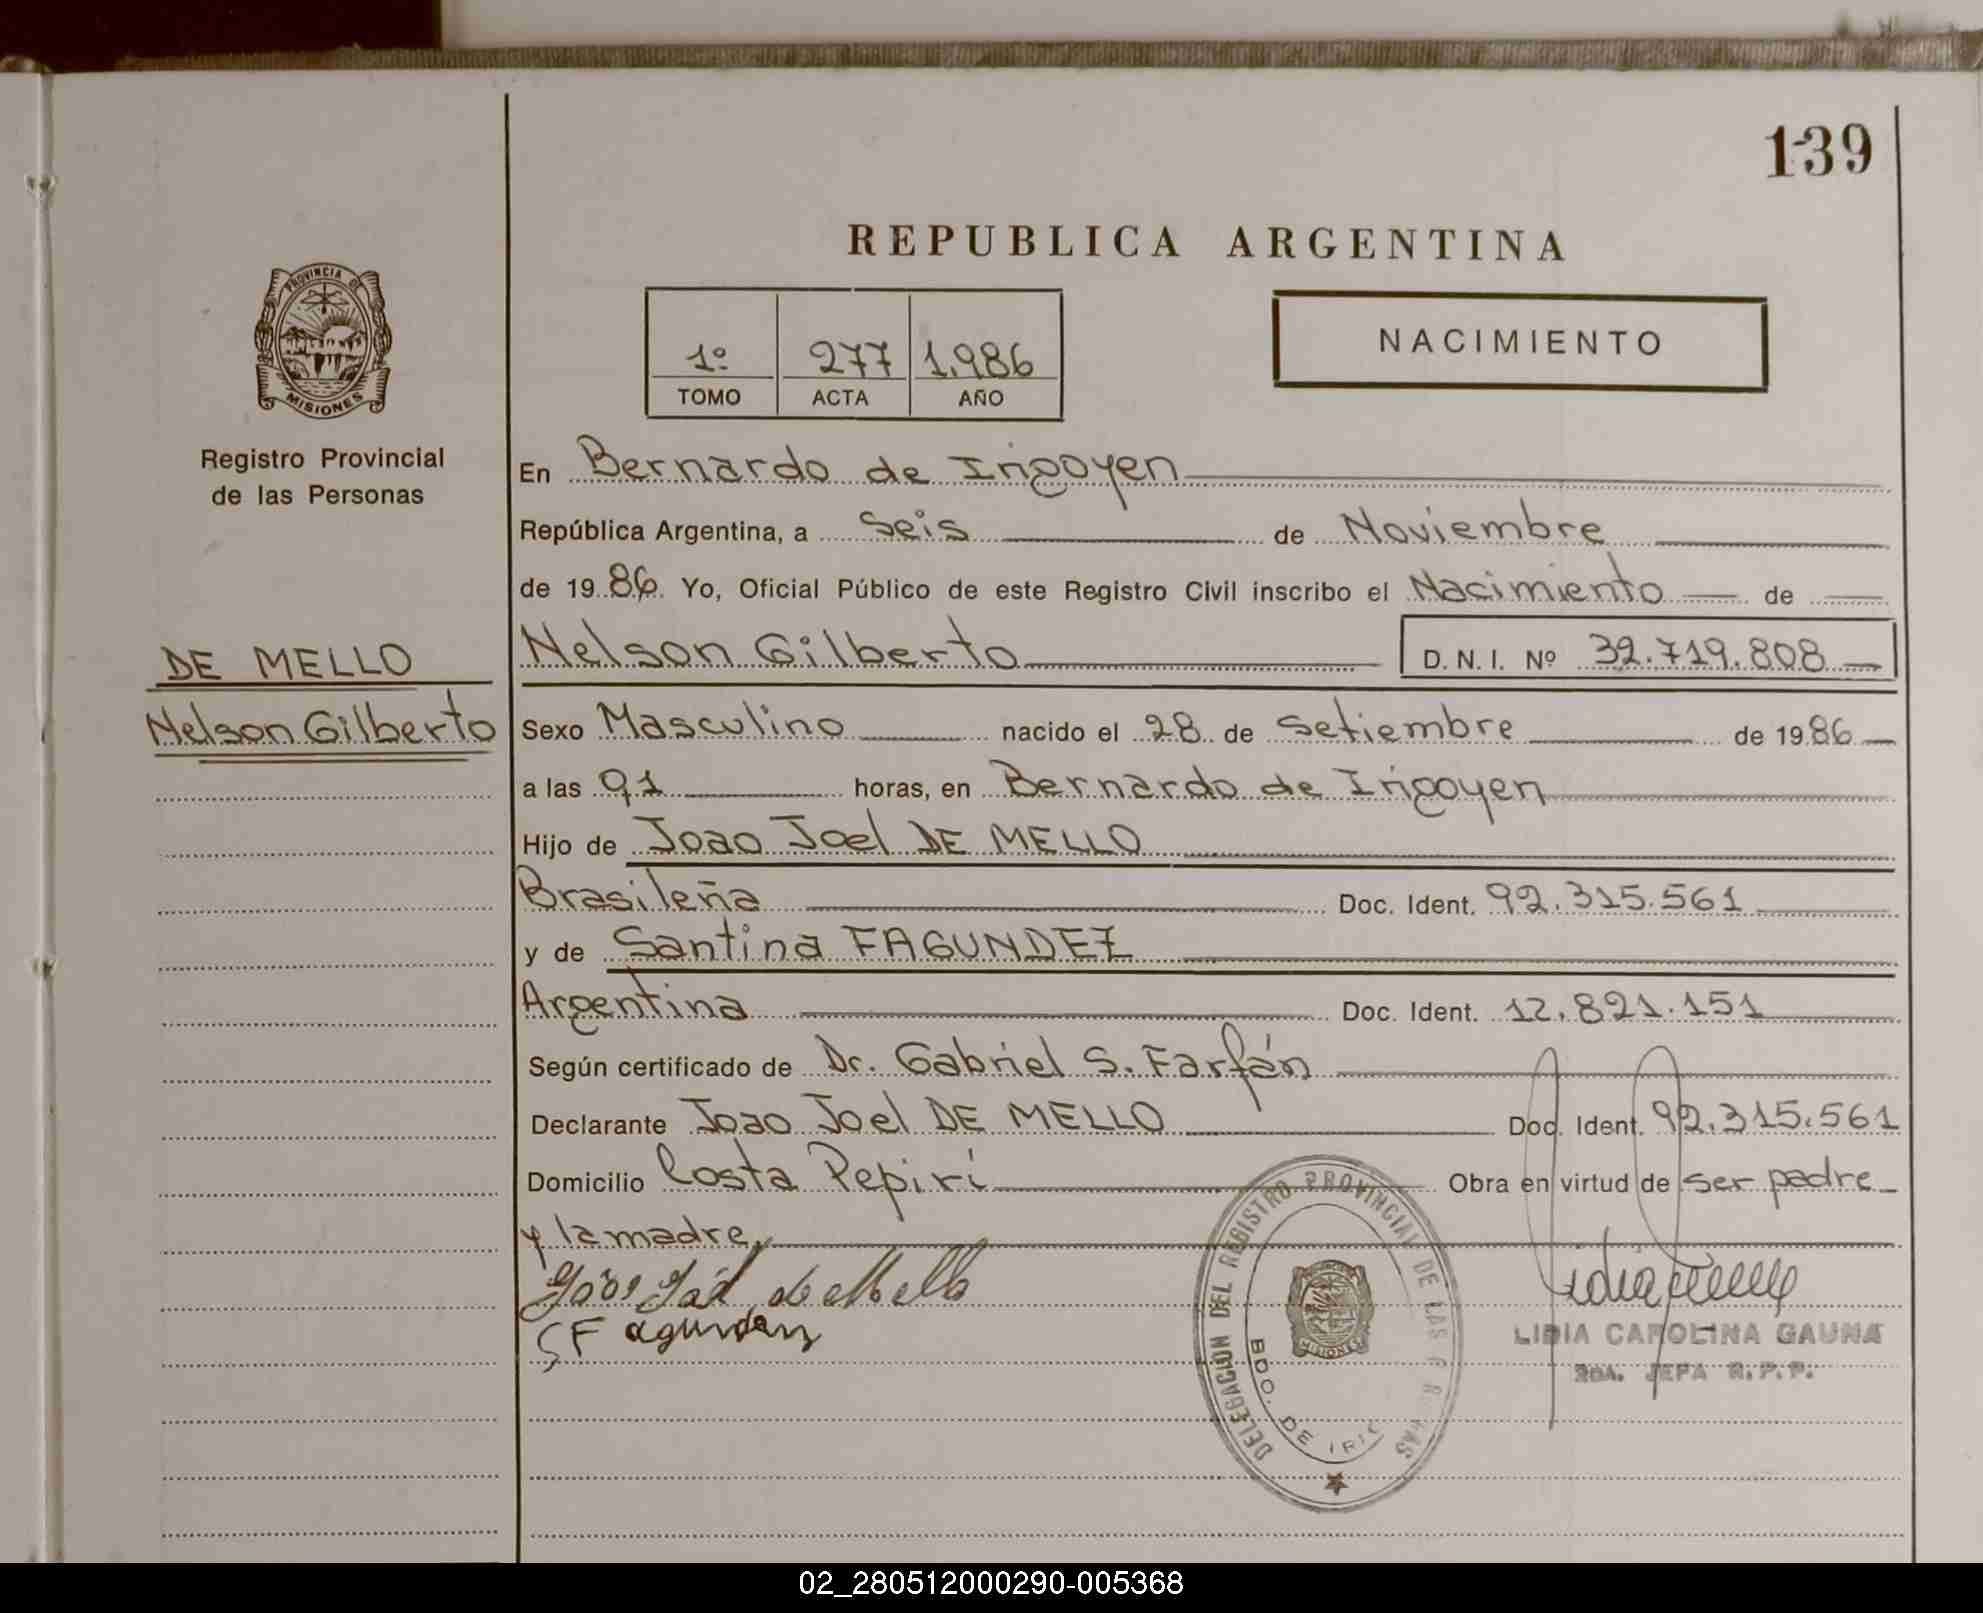 139
REPUBLICA ARGENTINA
PROVINCIA DE
MISIONES
Registro Provincial
de las Personas
1º 277 1.986
TOMO ACTA AÑO
NACIMIENTO
En Bernardo de Irigoyen
República Argentina, a Seis de Noviembre
de 19 86 Yo, Oficial Público de este Registro Civil inscribo el Nacimiento de
DE MELLO
Nelson Gilberto
Nelson Gilberto D.N.I. Nº 32.719.808
Sexo Masculino nacido el 28 de Setiembre de 19 86
a las 21 horas, en Bernardo de Irigoyen
Hijo de Joao Joel DE MELLO
Brasileña Doc. Ident. 92.315.561
y de Santina FAGUNDEZ
Argentina Doc. Ident. 12.821.151
Según certificado de Dr. Gabriel S. Farfán
Declarante Joao Joel DE MELLO Doc. Ident. 92.315.561
Domicilio Costa Pepirí Obra en virtud de ser padre
y la madre
de Mello
S Fagundez
DELEGACION DEL REGISTRO PROVINCIAL DE LAS
BDO. DE
MISIONES
LIDIA CAROLINA GAUNA
2DA. JEFA R.P.P.
02_280512000290-005368